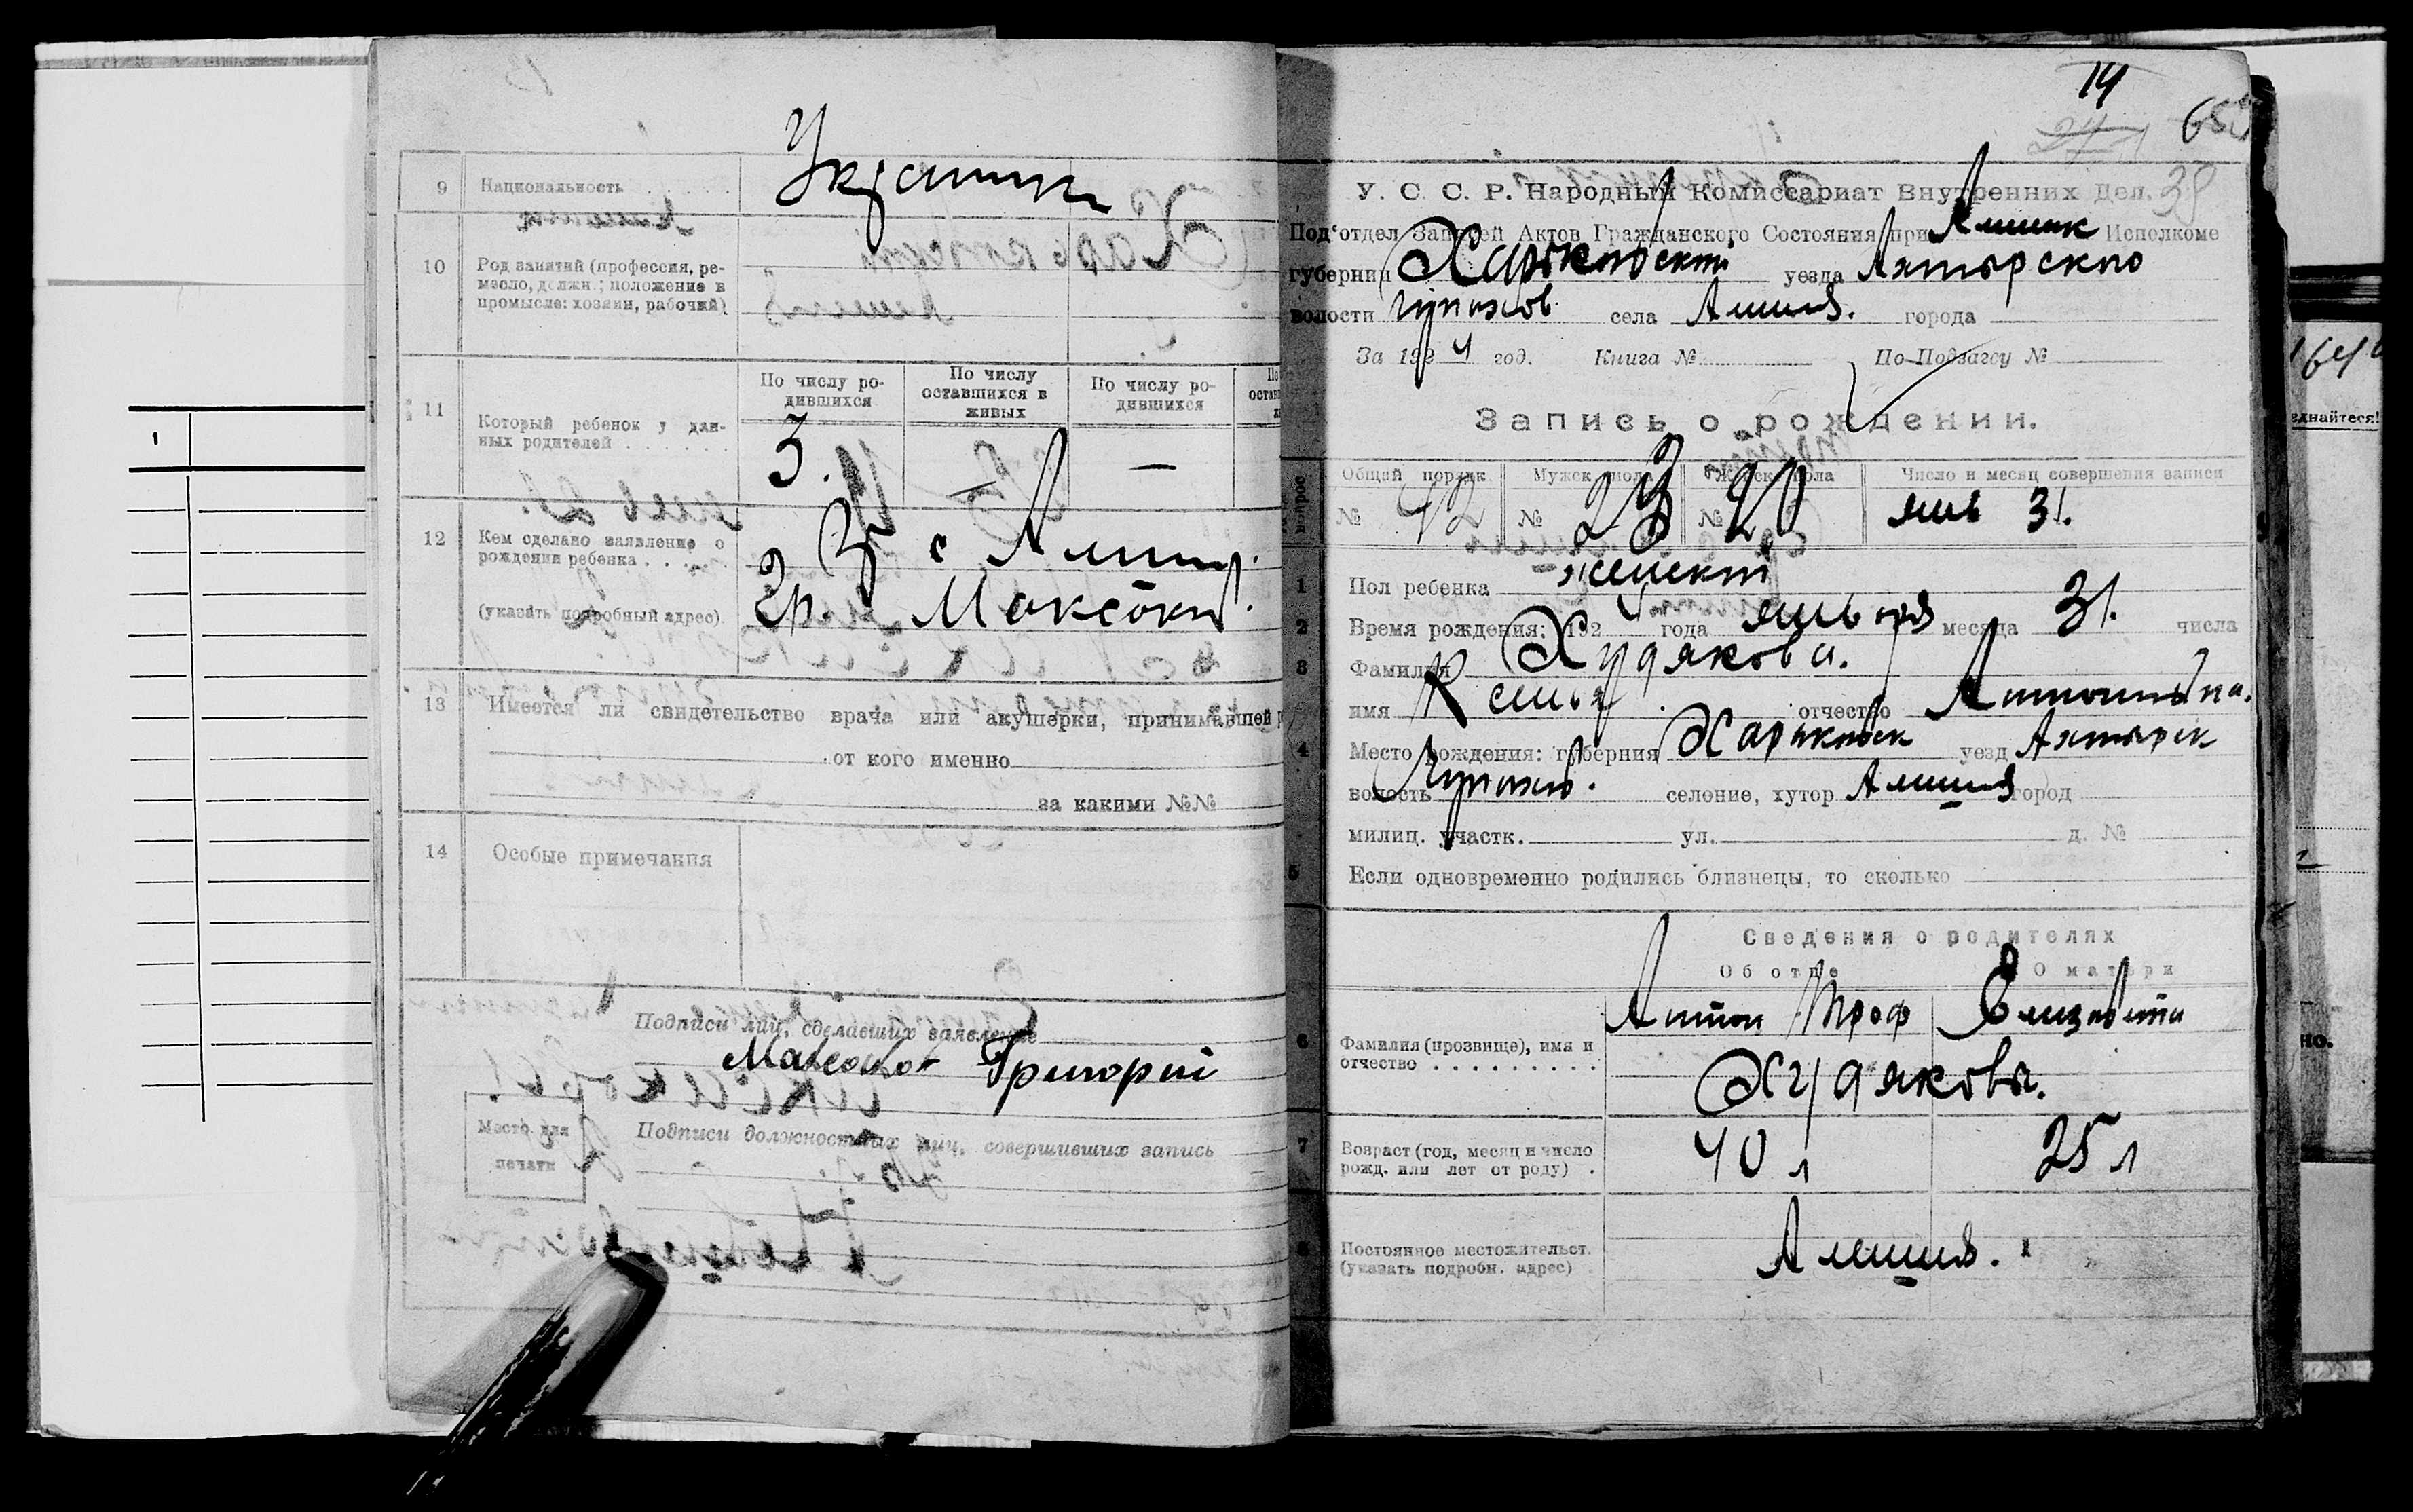 9 Национальность . . . . . Украинц
10 Род занятий (профессия, ре-
месло, должн.; положение в
промысле: хозяин, рабочий)
11 Который ребенок у дан-
ных родителей . . . . . . .
По числу ро-
дившихся
По числу
оставшихся в
живых
По числу ро-
дившихся
3. —
12 Кем сделано заявление о
рождении ребенка . . .
(указать подробный адрес)
Гр.
13 Имеется ли свидетельство врача или акушерки, принимавшей
от кого именно
за какими №№
14 Особые примечания
Подписи лиц, сделавших заявление
Григорий
Место для
печати
Подписи должностных лиц, совершивших запись
14
24
38
У. С. С. Р. Народный Комиссариат Внутренних Дел.
Под'отдел Записей Актов Гражданского Состояния при Исполкоме
губернии Харьковской уезда Ахтырского
волости села города
За 1924 год. Книга № По Подзагсу №
Запись о рождении.
Общий порядк Мужск пола Женск пола Число и месяц совершения записи
№ 42 № № 20 янв 31.
1 Пол ребенка женский
2 Время рождения: 1924 года января месяца 31. числа
3 Фамилия Худякова.
имя Ксенья отчество Антоновна.
4 Место рождения: губерния Харьковск уезд Ахтырск
волость селение, хутор город
милиц. участк. ул. д. №
5 Если одновременно родились близнецы, то сколько
Сведения о родителях
Об отце О матери
6 Фамилия (прозвище), имя и
отчество . . . . . . . . . .
Антон Троф Елизавета
Худяковы.
7 Возраст (год, месяц и число
рожд. или лет от роду) .
40 л 25 л
8 Постоянное местожительст.
(указать подробн. адрес)